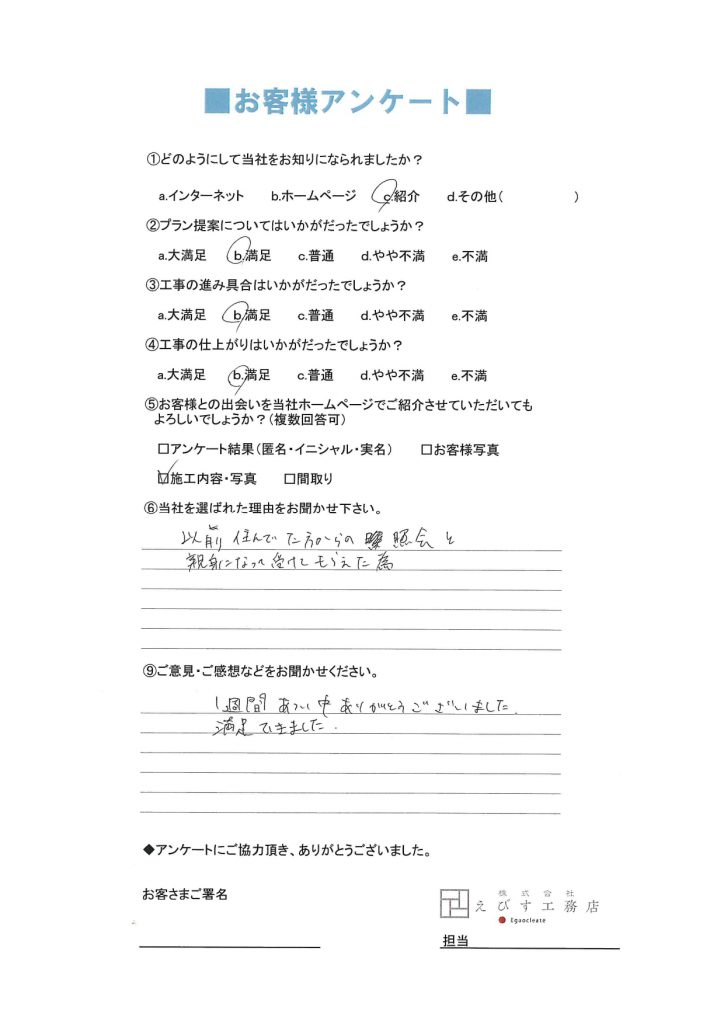 ■お客様アンケート■
①どのようにして当社をお知りになられましたか？
a.インターネット b.ホームページ c.紹介 d.その他( )
②プラン提案についてはいかがだったでしょうか？
a.大満足 b.満足 c.普通 d.やや不満 e.不満
③工事の進み具合はいかがだったでしょうか？
a.大満足 b.満足 c.普通 d.やや不満 e.不満
④工事の仕上がりはいかがだったでしょうか？
a.大満足 b.満足 c.普通 d.やや不満 e.不満
⑤お客様との出会いを当社ホームページでご紹介させていただいても
よろしいでしょうか？(複数回答可)
□アンケート結果(匿名・イニシャル・実名) □お客様写真
☑施工内容・写真 □間取り
⑥当社を選ばれた理由をお聞かせ下さい。
以前住んでた方からの照会と
親身になって受けてもらえた為
⑨ご意見・ご感想などをお聞かせください。
1週間あつい中ありがとうございました.
満足できました.
◆アンケートにご協力頂き、ありがとうございました。
お客さまご署名
株式会社
えびす工務店
Egaocleate
担当